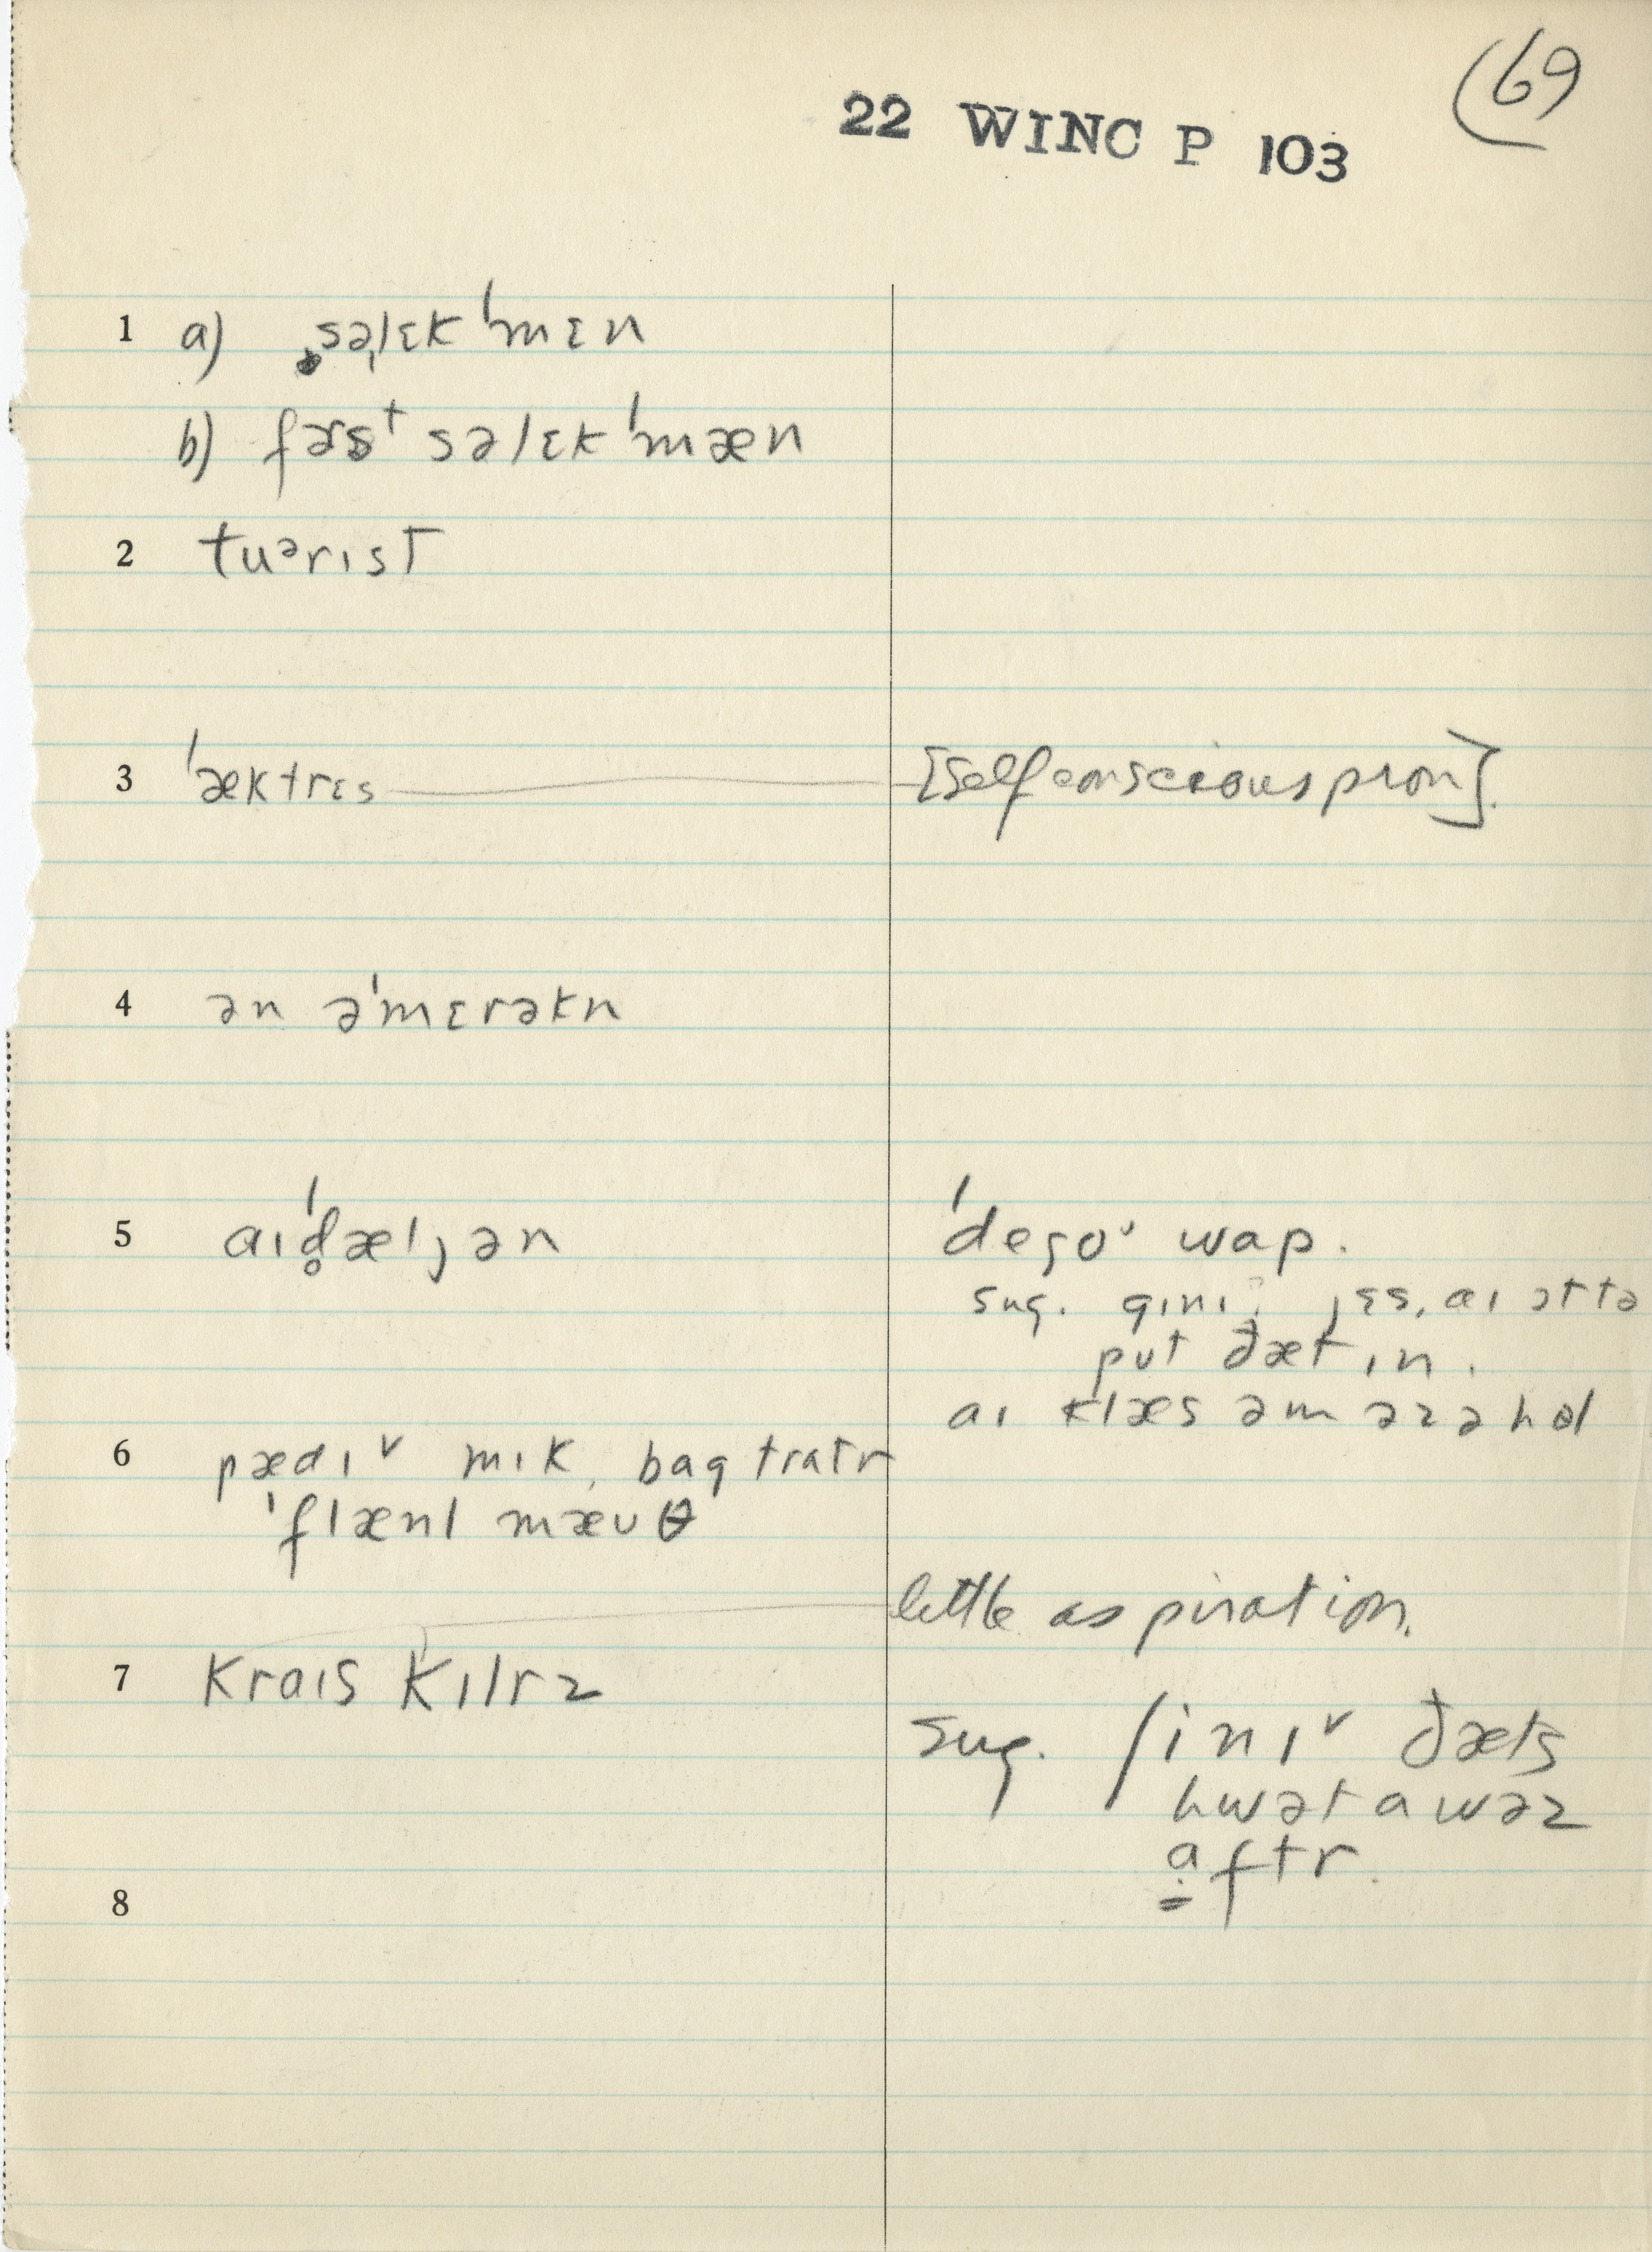 (69
22 WINC P 103
1 a) səˌlɛk ˈmɛn
b) fɜrst səlɛk ˈmæn
2 tuᵊrɪst
3 ˈæktrɛs [Self conscious pron].
4 ən əˈmɛrəkn
5 aɪˈd̥æljən ˈdegoᵛ wap.
sug. gɪnɪ: jɛs, aɪ
put ðæt ɪn.
aɪ klæs əm əz ə hol
6 pædɪᵛ mɪk, bag tratr
ˈflænl mæʊθ
little aspiration.
7 kraɪs kɪlrz
sug. ʃinɪᵛ ðæts
hwət a wəz
a̱ftr.
8